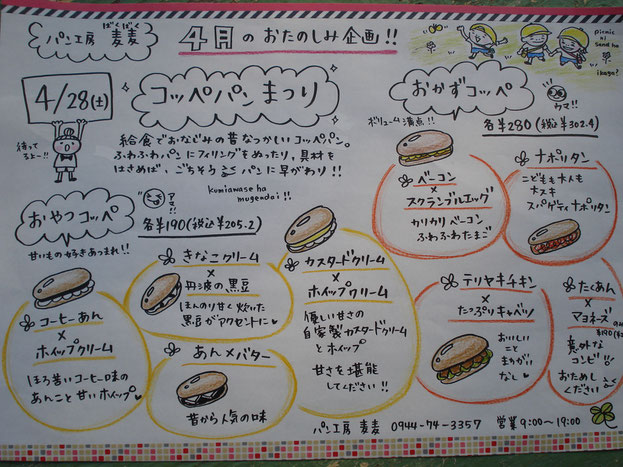 ばくばく
パン工房 麦麦
4月のおたのしみ企画!!
picnic
ni
sand ha
ikaga?
4/28(土)
待ってるよー!!
コッペパンまつり
給食でおなじみの昔なつかしいコッペパン。
ふわふわパンにフィリングをぬったり、具材を
はさめば、ごちそうパンに早がわり!!
kumiawase ha
mugendai!!
おかずコッペ
ウマ!!
ボリューム満点!!
各¥280(税込¥302.4)
ベーコン
×
スクランブルエッグ
カリカリベーコン
ふわふわたまご
ナポリタン
こどもも大人も
大スキ
スパゲティナポリタン
おやつコッペ
アマ!!
各¥190(税込¥205.2)
甘いもの好きあつまれ!!
コーヒーあん
×
ホイップクリーム
ほろ苦いコーヒー味の
あんこと甘いホイップ
きなこクリーム
×
丹波の黒豆
ほんのり甘く炊いた
黒豆がアクセントに
あん×バター
昔から人気の味
カスタードクリーム
×
ホイップクリーム
優しい甘さの
自家製カスタードクリーム
とホイップ
甘さを堪能
してください!!
テリヤキチキン
×
たっぷりキャベツ
おいしい
こと
まちがい
なし
たくあん
×
マヨネーズ
¥190
意外な
コンビ!!
おためし
ください
パン工房 麦麦 0944-74-3357 営業9:00~19:00